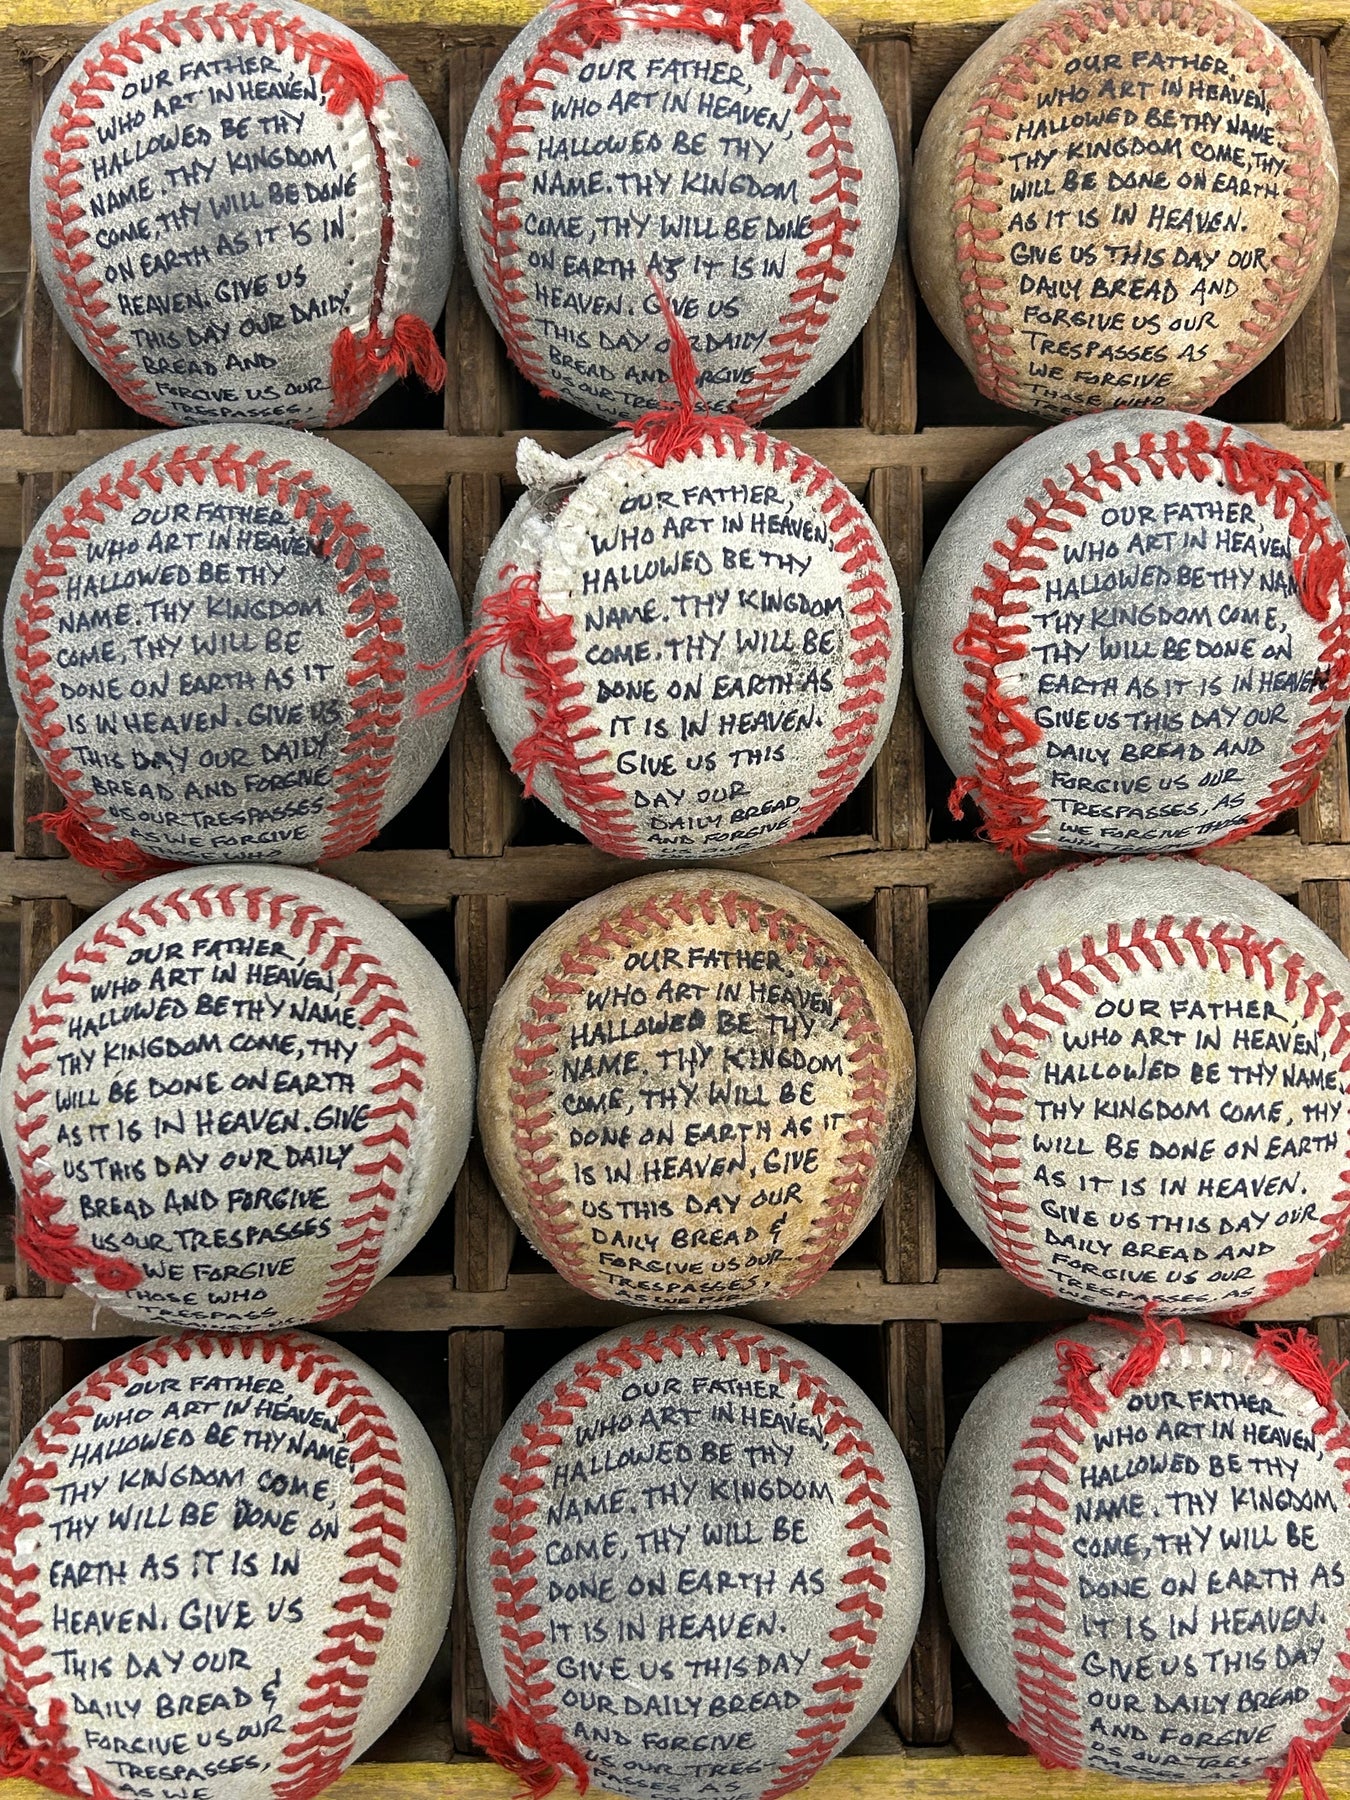 OUR FATHER,
WHO ART IN HEAVEN,
HALLOWED BE THY
NAME. THY KINGDOM
COME, THY WILL BE DONE
ON EARTH AS IT IS IN
HEAVEN. GIVE US
THIS DAY OUR DAILY
BREAD AND
FORGIVE US OUR
TRESPASSES,
OUR FATHER,
WHO ART IN HEAVEN,
HALLOWED BE THY
NAME. THY KINGDOM
COME, THY WILL BE DONE
ON EARTH AS IT IS IN
HEAVEN. GIVE US
THIS DAY OUR DAILY
BREAD AND FORGIVE
US OUR TRESPASSES
OUR FATHER,
WHO ART IN HEAVEN,
HALLOWED BE THY NAME.
THY KINGDOM COME, THY
WILL BE DONE ON EARTH
AS IT IS IN HEAVEN.
GIVE US THIS DAY OUR
DAILY BREAD AND
FORGIVE US OUR
TRESPASSES AS
WE FORGIVE
THOSE WHO
OUR FATHER,
WHO ART IN HEAVEN
HALLOWED BE THY
NAME. THY KINGDOM
COME, THY WILL BE
DONE ON EARTH AS IT
IS IN HEAVEN. GIVE US
THIS DAY OUR DAILY
BREAD AND FORGIVE
US OUR TRESPASSES
AS WE FORGIVE
WHO
OUR FATHER,
WHO ART IN HEAVEN,
HALLOWED BE THY
NAME. THY KINGDOM
COME. THY WILL BE
DONE ON EARTH AS
IT IS IN HEAVEN.
GIVE US THIS
DAY OUR
DAILY BREAD
AND FORGIVE
US OUR
OUR FATHER,
WHO ART IN HEAVEN
HALLOWED BE THY NAM
THY KINGDOM COME,
THY WILL BE DONE ON
EARTH AS IT IS IN HEAVEN.
GIVE US THIS DAY OUR
DAILY BREAD AND
FORGIVE US OUR
TRESPASSES, AS
WE FORGIVE THOSE
WHO
OUR FATHER,
WHO ART IN HEAVEN,
HALLOWED BE THY NAME.
THY KINGDOM COME, THY
WILL BE DONE ON EARTH
AS IT IS IN HEAVEN. GIVE
US THIS DAY OUR DAILY
BREAD AND FORGIVE
US OUR TRESPASSES
WE FORGIVE
THOSE WHO
TRESPASS
OUR FATHER,
WHO ART IN HEAVEN,
HALLOWED BE THY
NAME. THY KINGDOM
COME, THY WILL BE
DONE ON EARTH AS IT
IS IN HEAVEN, GIVE
US THIS DAY OUR
DAILY BREAD &
FORGIVE US OUR
TRESPASSES,
AS WE
OUR FATHER,
WHO ART IN HEAVEN,
HALLOWED BE THY NAME,
THY KINGDOM COME, THY
WILL BE DONE ON EARTH
AS IT IS IN HEAVEN.
GIVE US THIS DAY OUR
DAILY BREAD AND
FORGIVE US OUR
TRESPASSES, AS
OUR FATHER,
WHO ART IN HEAVEN,
HALLOWED BE THY NAME.
THY KINGDOM COME,
THY WILL BE DONE ON
EARTH AS IT IS IN
HEAVEN. GIVE US
THIS DAY OUR
DAILY BREAD &
FORGIVE US OUR
TRESPASSES,
AS WE
OUR FATHER,
WHO ART IN HEAVEN,
HALLOWED BE THY
NAME. THY KINGDOM
COME, THY WILL BE
DONE ON EARTH AS
IT IS IN HEAVEN.
GIVE US THIS DAY
OUR DAILY BREAD
AND FORGIVE
US OUR TRES-
PASSES AS
OUR FATHER
WHO ART IN HEAVEN,
HALLOWED BE THY
NAME. THY KINGDOM
COME, THY WILL BE
DONE ON EARTH AS
IT IS IN HEAVEN.
GIVE US THIS DAY
OUR DAILY BREAD
AND FORGIVE
US OUR TRES-